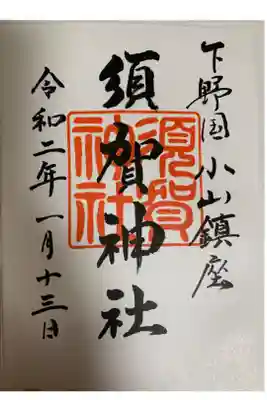 下野国 小山鎮座
須賀神社
須賀神社
令和二年一月十三日